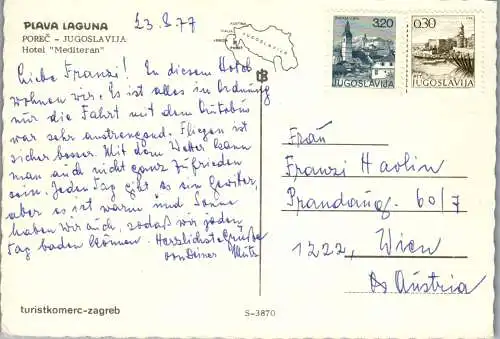 PLAVA LAGUNA
POREČ – JUGOSLAVIJA
Hotel "Mediteran"
23.8.77
Liebe Franzi! In diesem Hotel
wohnen wir. Es ist alles in Ordnung
nur die Fahrt mit dem Autobus
war sehr anstrengend. Fliegen ist
sicher besser. Mit dem Wetter kann
man auch nicht ganz zufrieden
sein. Jeden Tag gibt es ein Gewitter,
aber es ist warm und Sonne
haben wir auch, sodaß wir jeden
Tag baden können. Herzlichste Grüße
von Deiner
turistkomerc-zagreb
S-3870
JUGOSLAVIJA
3.20
JUGOSLAVIJA
0.30
JUGOSLAVIJA
Frau
Franzi Havlin
Prandaug. 60/7
1222, Wien
Austria